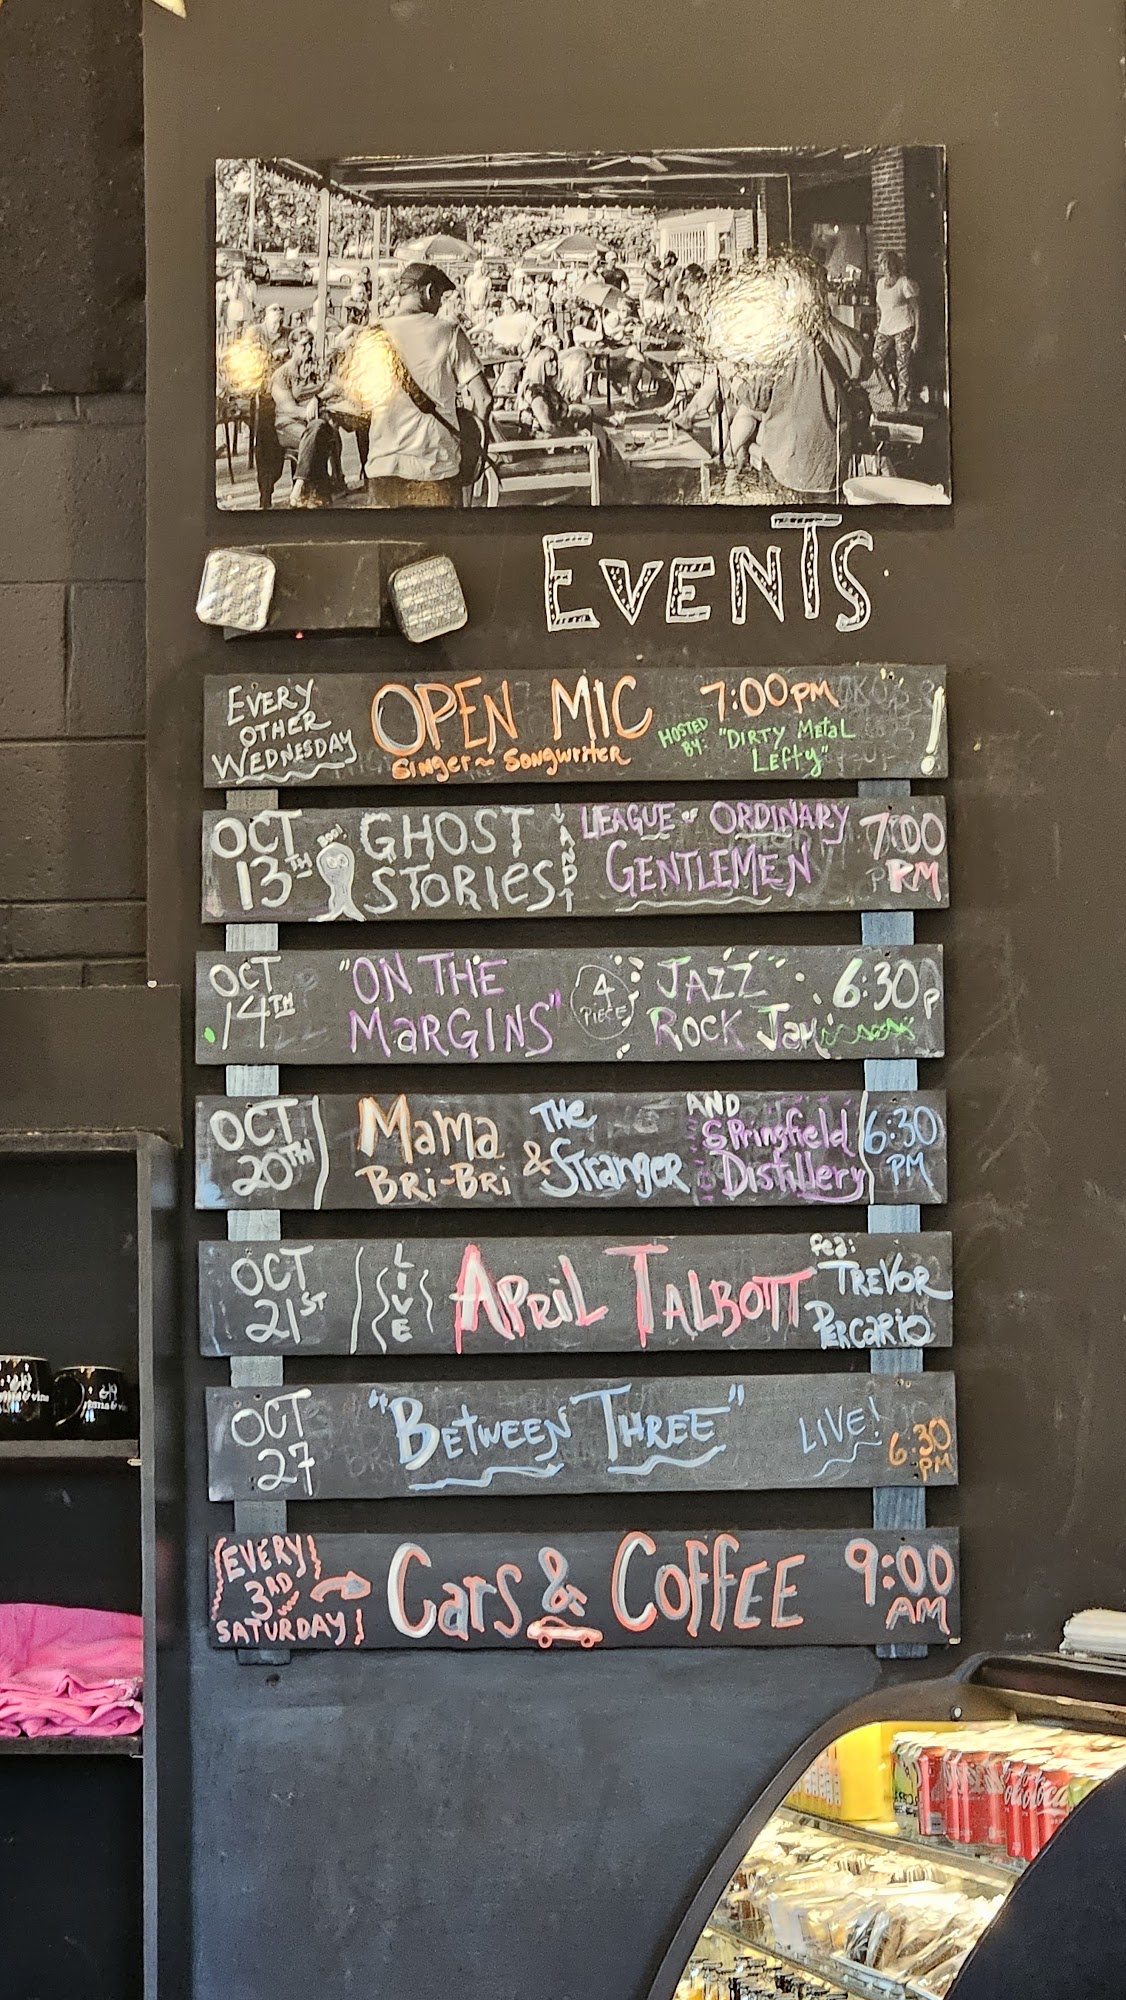 EVENTS
EVERY OTHER WEDNESDAY
OPEN MIC
Singer~Songwriter
7:00PM
HOSTED BY: "DIRTY METAL LEFTY"
!
OCT 13TH
BOO!
GHOST STORIES
AND
LEAGUE OF ORDINARY GENTLEMEN
7:00 PM
OCT 14TH
"ON THE MARGINS"
4 PIECE
JAZZ ROCK JAM
6:30P
OCT 20TH
MAMA BRI-BRI
& THE Stranger
AND Springfield Distillery
6:30 PM
OCT 21ST
LIVE
APRIL TALBOTT
fea: TREVOR PERCARIO
OCT 27
"BETWEEN THREE"
LIVE!
6:30 PM
EVERY 3RD SATURDAY
Cars & COFFEE
9:00 AM